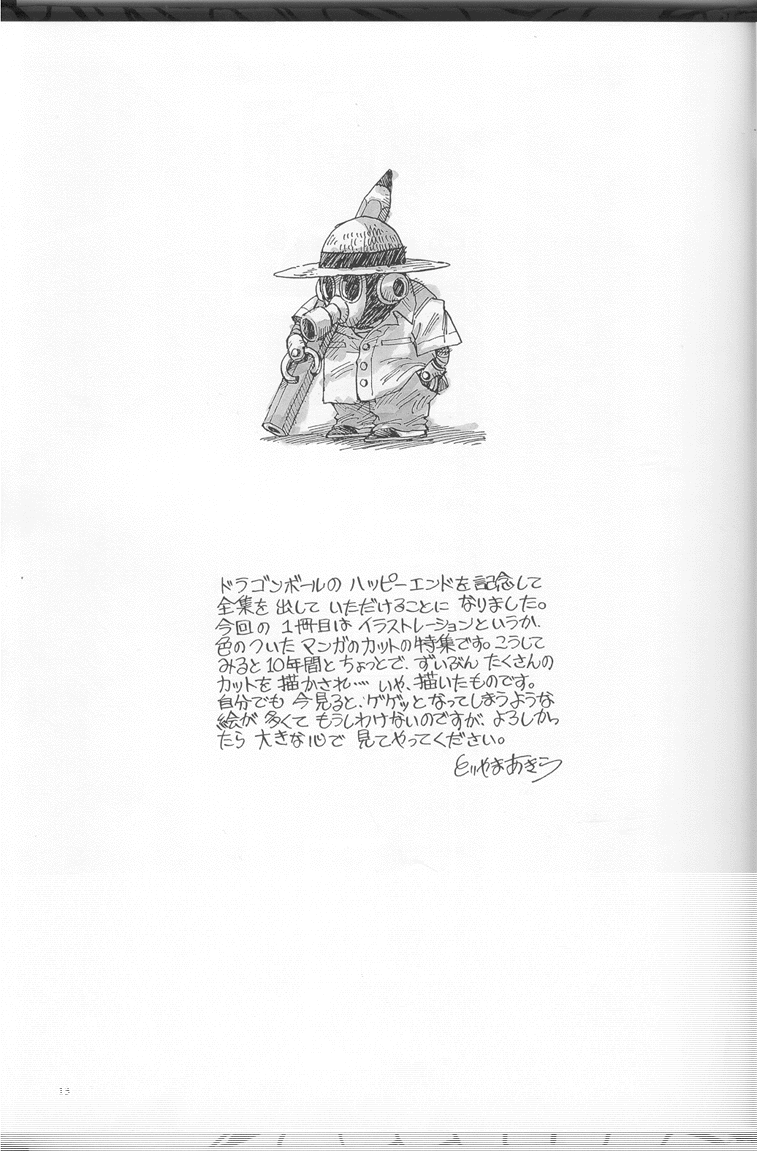 ドラゴンボールの ハッピーエンドを 記念して
全集を 出して いただけることに なりました。
今回の 1冊目は イラストレーションというか、
色のついた マンガのカットの特集です。こうして
みると10年間とちょっとで、ずいぶん たくさんの
カットを 描かされ… いや、描いたものです。
自分でも 今見ると、ゲゲッとなってしまうような
絵が 多くて もうしわけないのですが、よろしかっ
たら 大きな心で 見てやってください。
とりやまあきら